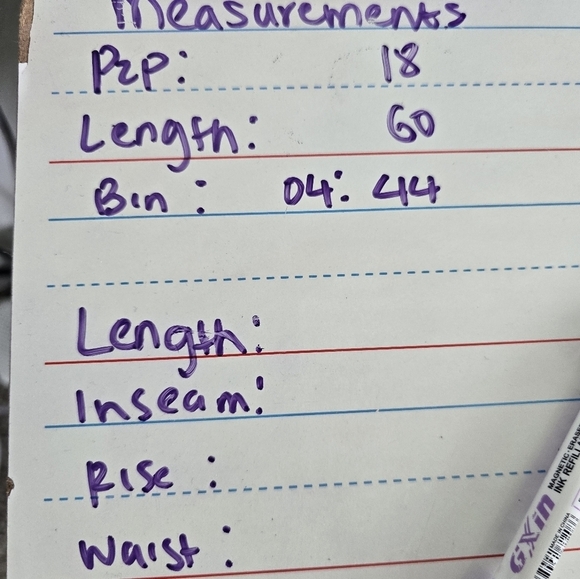 Measurements
P2P: 18
Length: 60
Bin: 04: 44
Length:
Inseam:
Rise:
Waist:
GXin
MAGNETIC ERASE
INK REFILL
MADE IN CHINA